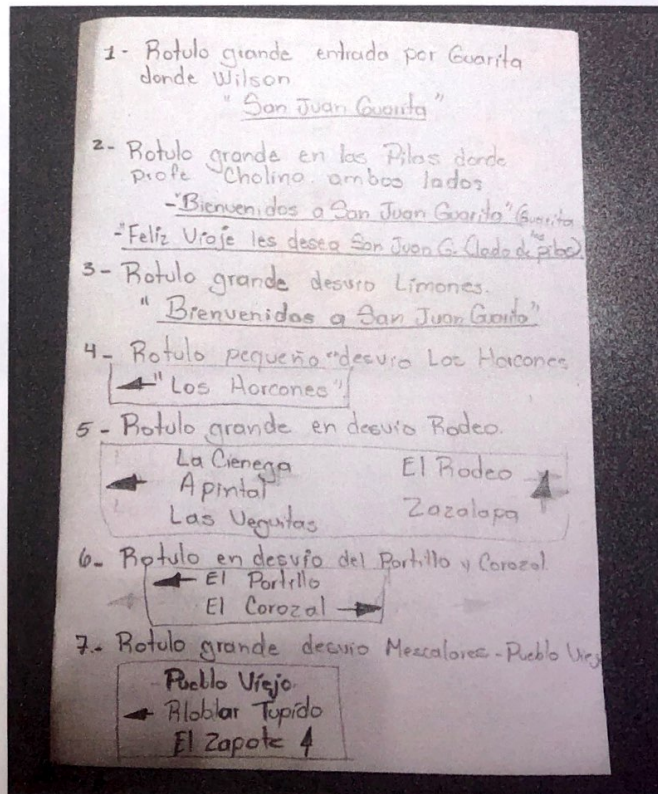 1- Rotulo grande entrada por Guarita
donde Wilson
"San Juan Guarita"
2- Rotulo grande en las Pilas donde
profe Cholino ambos lados
-"Bienvenidos a San Juan Guarita" (Guarita
-"Feliz Viaje les desea San Juan G. (lado de las pilas)
3- Rotulo grande desvio Limones.
"Bienvenidos a San Juan Guarita"
4- Rotulo pequeño "desvio Los Horcones
"Los Horcones"
5- Rotulo grande en desvio Rodeo.
La Cienega
Apintal
Las Veguitas
El Rodeo
Zazalapa
6- Rotulo en desvio del Portillo y Corozal
El Portillo
El Corozal
7.- Rotulo grande desvio Mescalores - Pueblo Viejo
Pueblo Viejo
Tupido
El Zapote